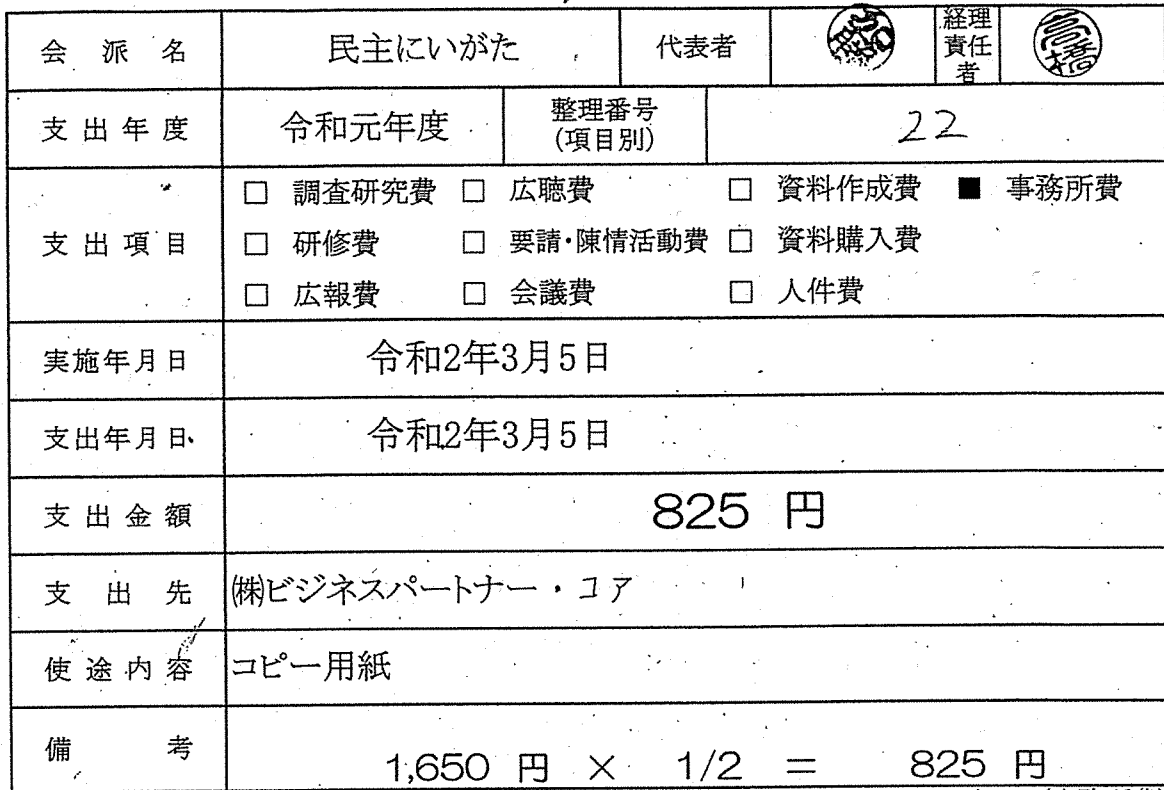 会派名 民主にいがた 代表者 経理責任者 高橋
支出年度 令和元年度 整理番号(項目別) 22
支出項目
□ 調査研究費 □ 広聴費 □ 資料作成費 ■ 事務所費
□ 研修費 □ 要請・陳情活動費 □ 資料購入費
□ 広報費 □ 会議費 □ 人件費
実施年月日 令和2年3月5日
支出年月日 令和2年3月5日
支出金額 825 円
支出先 ㈱ビジネスパートナー・コア
使途内容 コピー用紙
備考 1,650 円 × 1/2 = 825 円